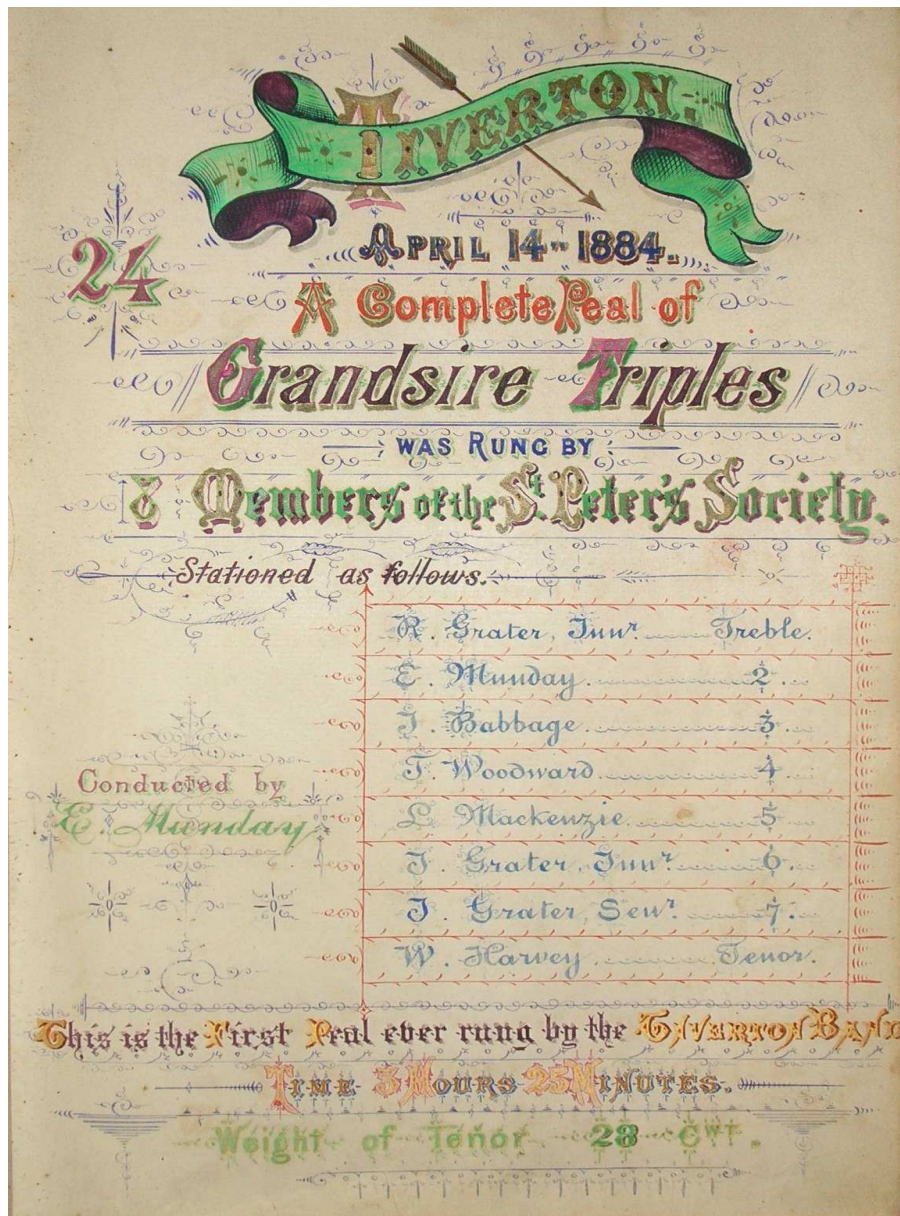 TIVERTON.
APRIL 14TH 1884.
24
A Complete Peal of
Grandsire Triples
WAS RUNG BY
8 Members of the St. Peter's Society.
Stationed as follows.
R. Grater, Junr. Treble.
E. Munday. 2.
J. Babbage. 3.
T. Woodward. 4.
L. Mackenzie. 5.
J. Grater, Junr. 6.
J. Grater, Senr. 7.
W. Harvey. Tenor.
Conducted by
E. Munday
This is the First Peal ever rung by the TIVERTON BAND
TIME 3 HOURS 25 MINUTES.
Weight of Tenor 28 CWT.